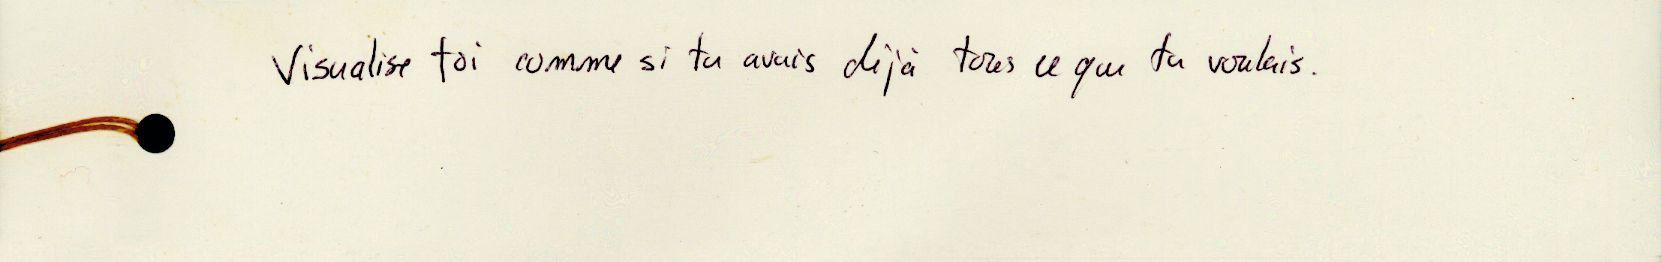 Visualise toi comme si tu avais déjà tous ce que tu voulais.